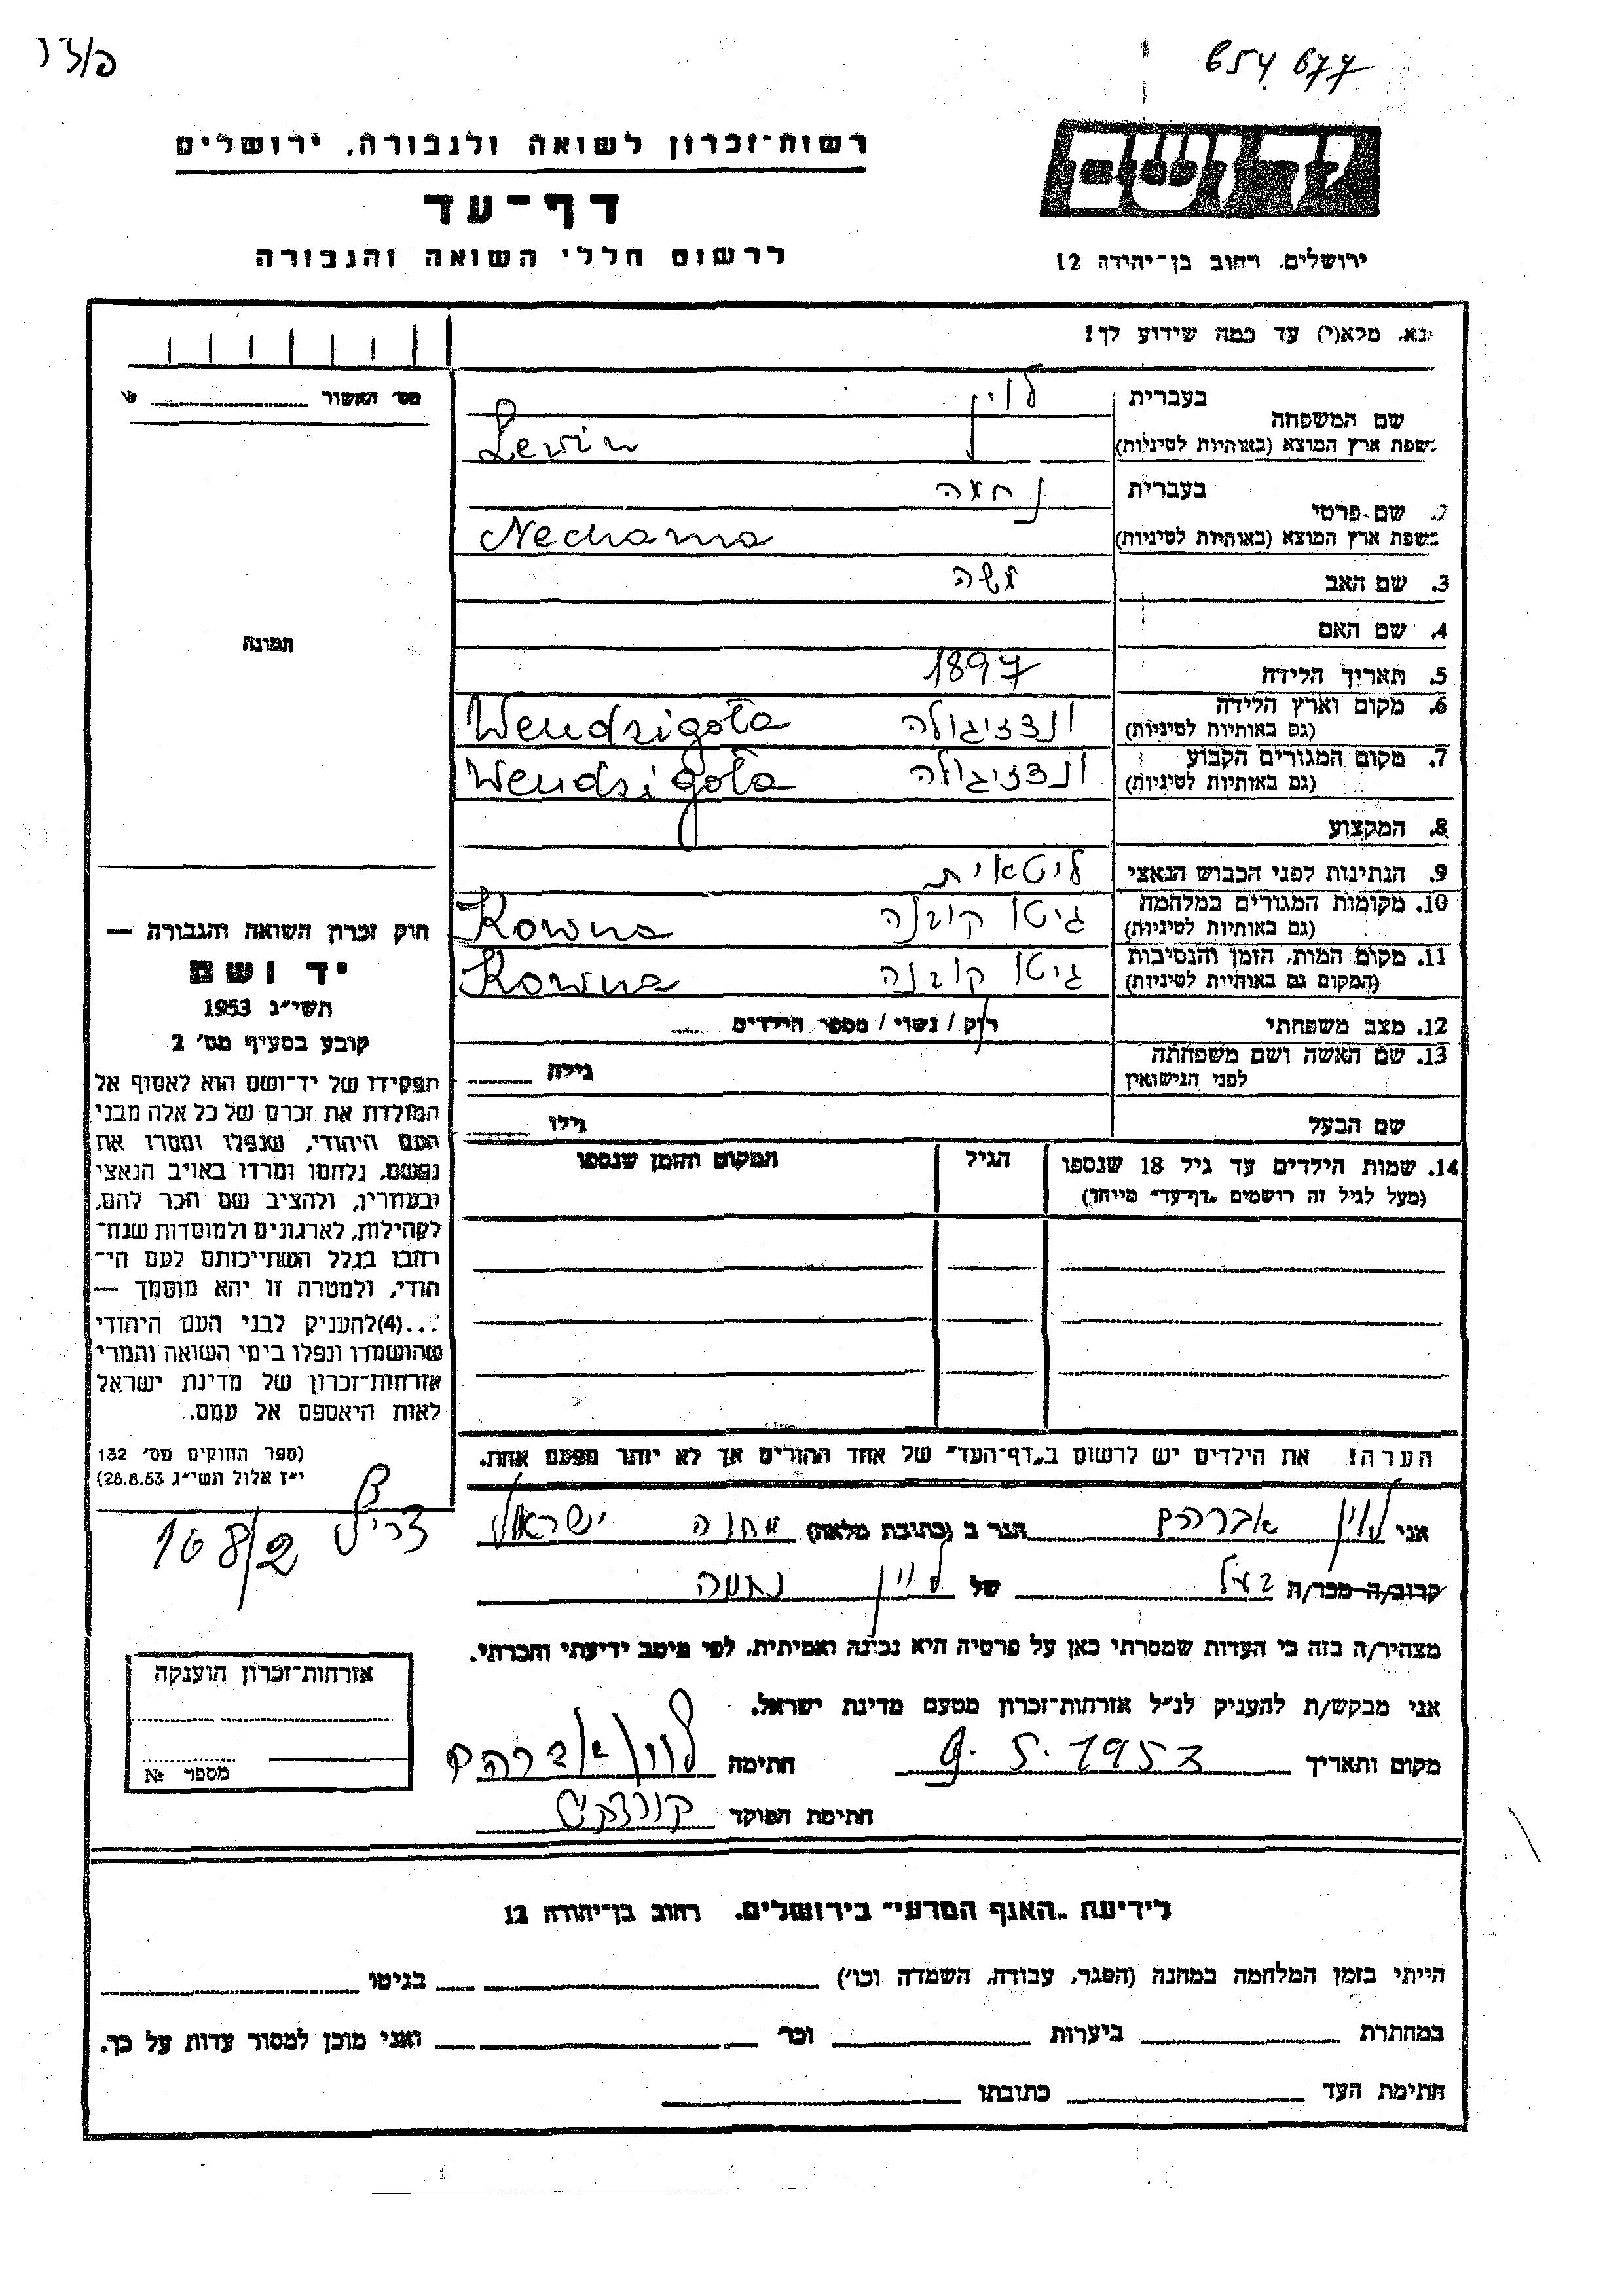 654 677
רשות־זכרון לשואה ולגבורה, ירושלים
דף־עד
לרשום חללי השואה והגבורה
ירושלים, רחוב בן־יהודה 12
נא, מלא(י) עד כמה שידוע לך!
בעברית לוין
שם המשפחה
בשפת ארץ המוצא (באותיות לטיניות) Lewin
בעברית נחמה
2. שם פרטי
בשפת ארץ המוצא (באותיות לטיניות) Nechama
3. שם האב משה
4. שם האם
5. תאריך הלידה 1897
6. מקום וארץ הלידה ונדזיגולה Wendzigoła
(גם באותיות לטיניות)
7. מקום המגורים הקבוע ונדזיגולה Wendzigoła
(גם באותיות לטיניות)
8. המקצוע
9. הנתינות לפני הכבוש הנאצי ליטאית
10. מקומות המגורים במלחמה גיטו קובנה Kowna
(גם באותיות לטיניות)
11. מקום המות, הזמן והנסיבות גיטו קובנה Kowna
(המקום גם באותיות לטיניות)
12. מצב משפחתי רוק / נשוי / מספר הילדים
13. שם האשה ושם משפחתה גילה
לפני הנישואין
שם הבעל גילו
14. שמות הילדים עד גיל 18 שנספו הגיל המקום והזמן שנספו
(מעל לגיל זה רושמים „דף־עד" מיוחד)
הערה! את הילדים יש לרשום ב„דף־העד" של אחד ההורים אך לא יותר מפעם אחת.
מס' האשור
תמונה
חוק זכרון השואה והגבורה —
יד ושם
תשי"ג 1953
קובע בסעיף מס' 2
תפקידו של יד־ושם הוא לאסוף אל
המולדת את זכרם של כל אלה מבני
העם היהודי, שנפלו ומסרו את
נפשם, נלחמו ומרדו באויב הנאצי
ובעוזריו, ולהציב שם וזכר להם,
לקהילות, לארגונים ולמוסדות שנח־
רבו בגלל השתייכותם לעם הי־
הודי, ולמטרה זו יהא מוסמך —
...(4) להעניק לבני העם היהודי
שהושמדו ונפלו בימי השואה והמרי
אזרחות־זכרון של מדינת ישראל
לאות היאספם אל עמם.
(ספר החוקים מס' 132
י"ז אלול תשי"ג 28.8.53)
אני לוין אברהם הגר ב (כתובת מלאה) מחנה ישראל צריף 168/2
קרוב/ה מכר/ה בעל של לוין נחמה
מצהיר/ה בזה כי העדות שמסרתי כאן על פרטיה היא נכונה ואמיתית, לפי מיטב ידיעתי והכרתי.
אני מבקש/ת להעניק לנ"ל אזרחות־זכרון מטעם מדינת ישראל.
מקום ותאריך 9.5.1953 חתימה לוין אברהם
חתימת הפוקד
אזרחות־זכרון הוענקה
מספר №
לידיעת „האגף המדעי" בירושלים, רחוב בן־יהודה 12
הייתי בזמן המלחמה במחנה (הסגר, עבודה, השמדה וכו') בגיטו
במחתרת ביערות וכו' ואני מוכן למסור עדות על כך.
חתימת העד כתובתו